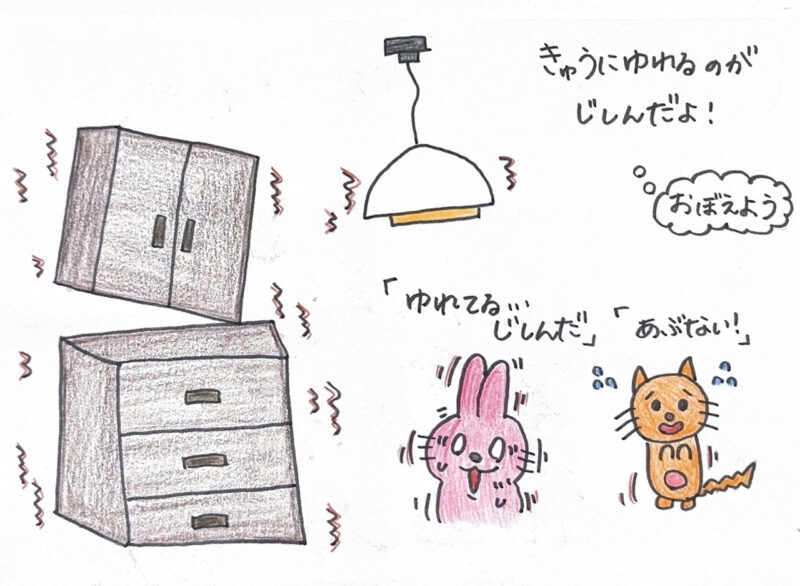 きゅうにゆれるのが
じしんだよ！
おぼえよう
「ゆれてる…
じしんだ」
「あぶない！」